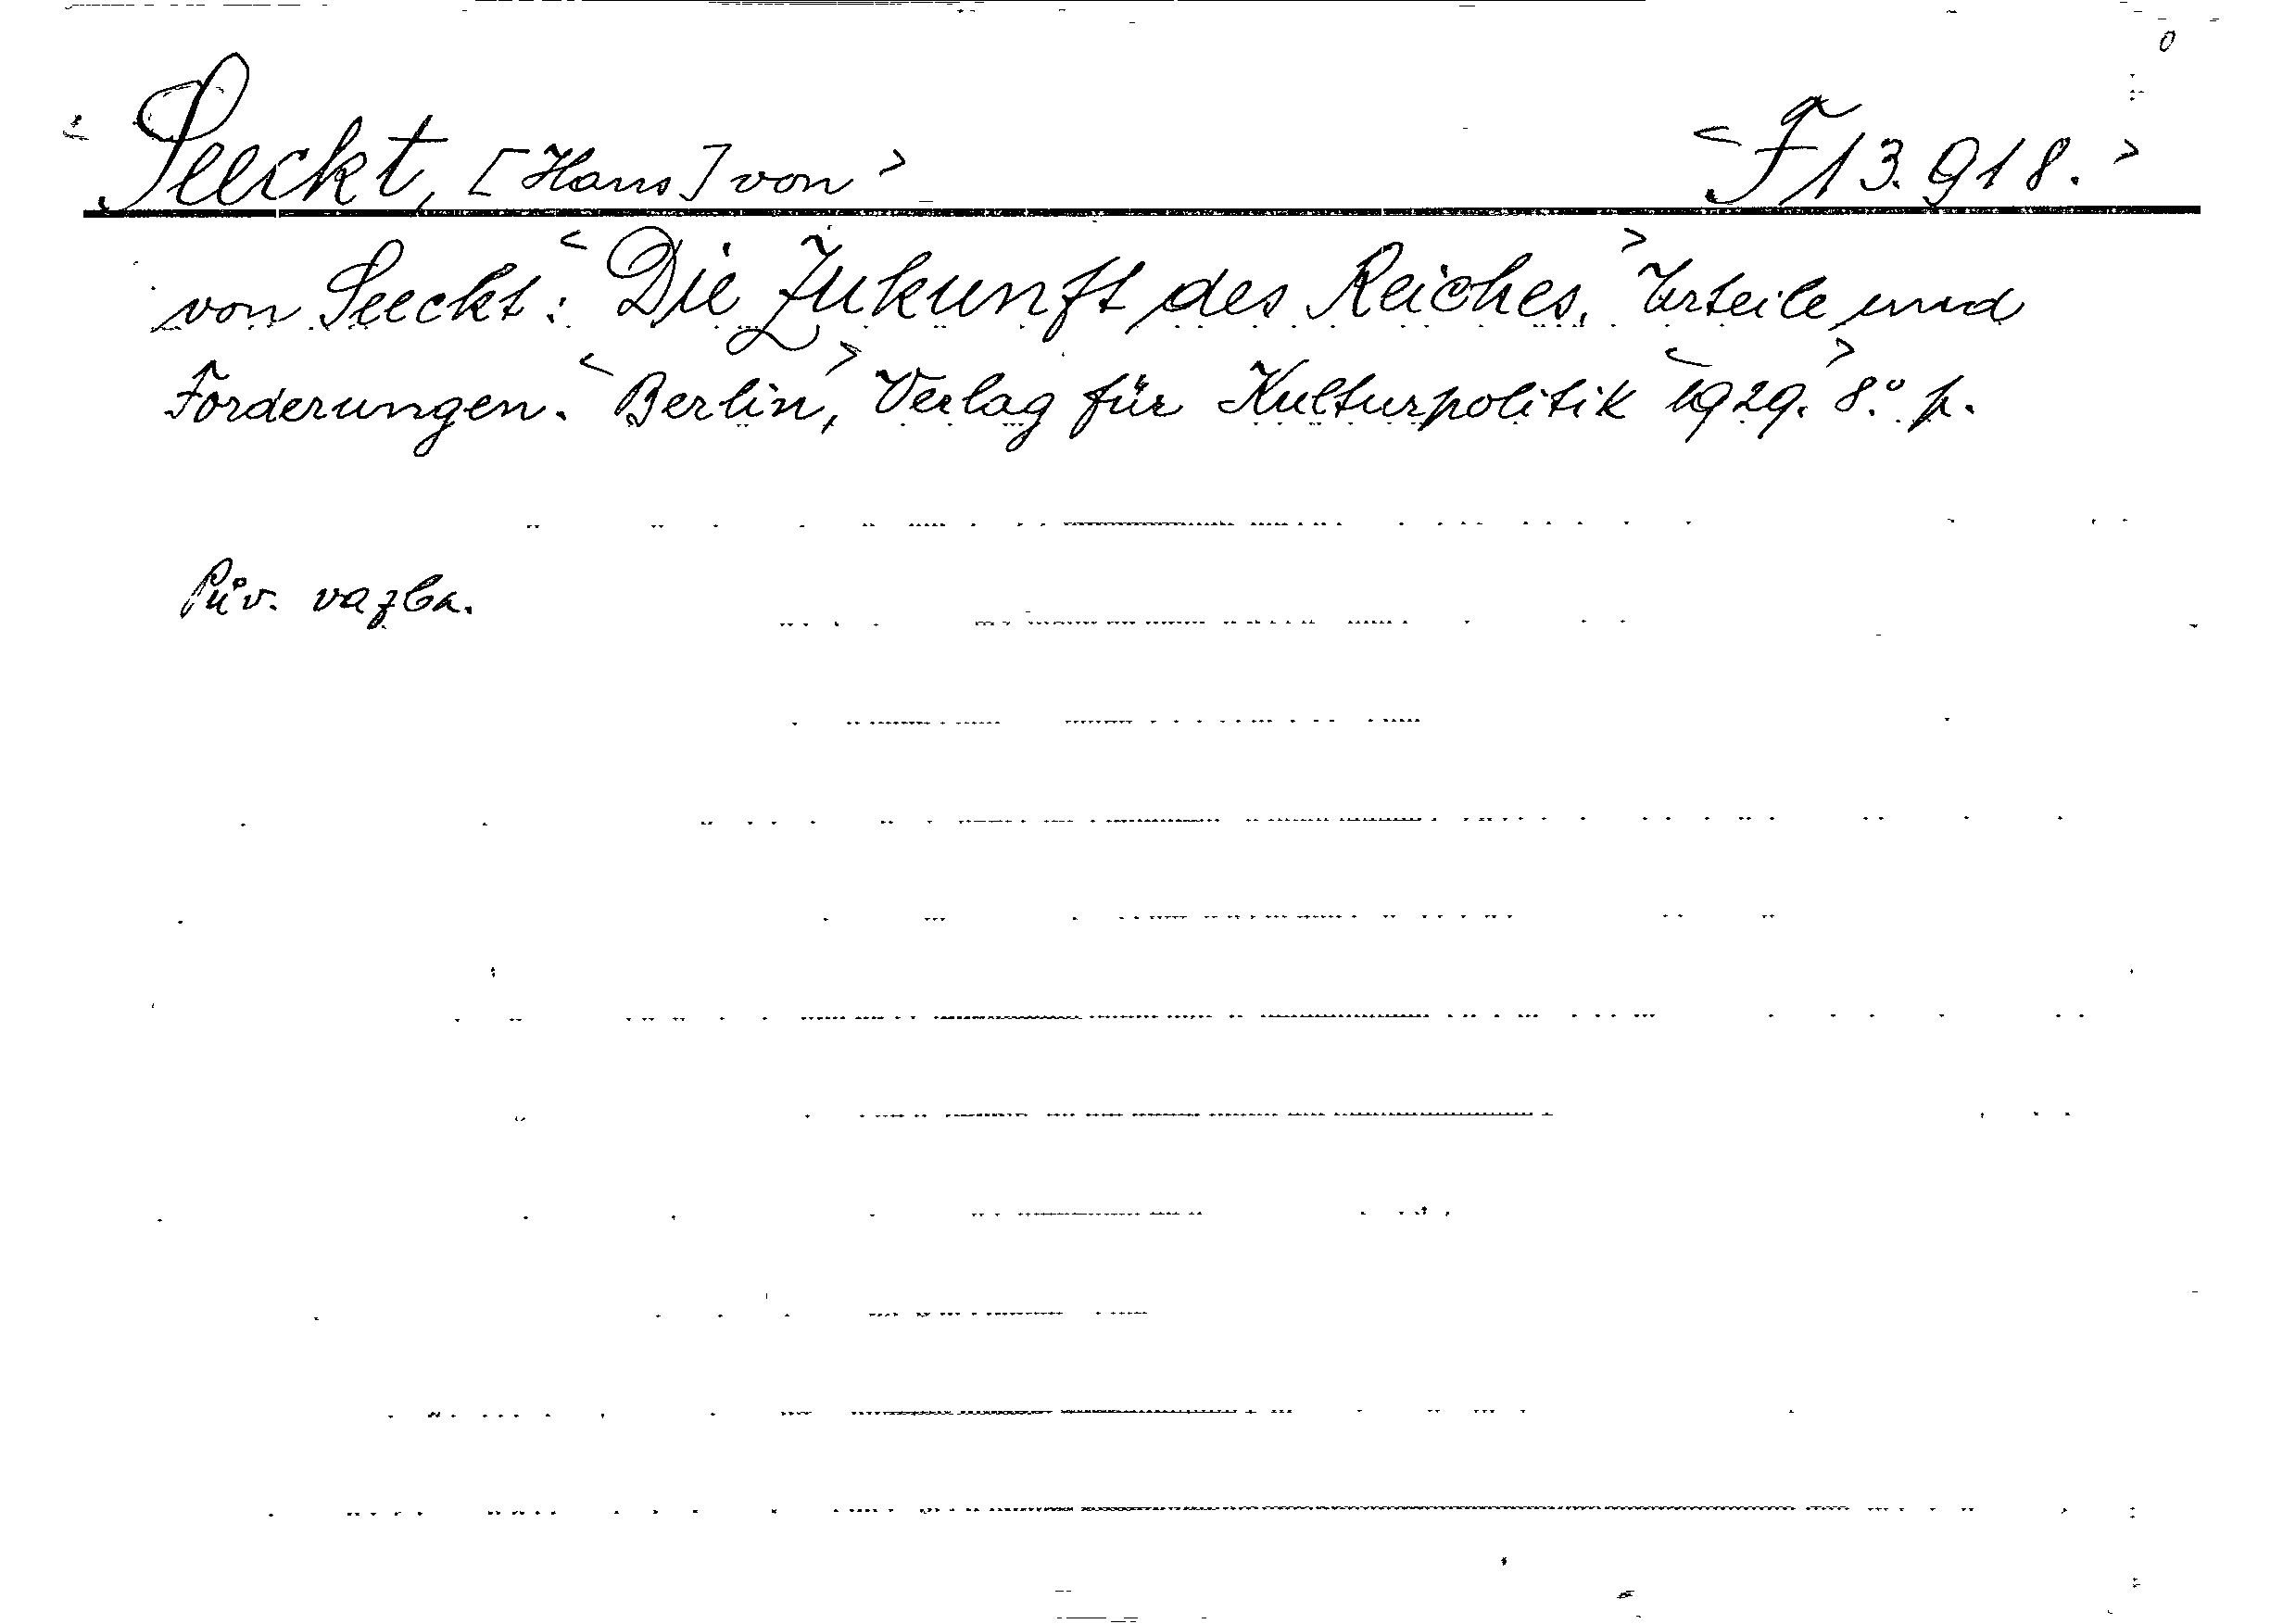 <Seeckt, [Hans] von> <F 13.918.>
von Seeckt: <Die Zukunft des Reiches.> Urteile und
Forderungen. <Berlin,> Verlag für Kulturpolitik <1929.> 8.° p.
Pův. vazba.